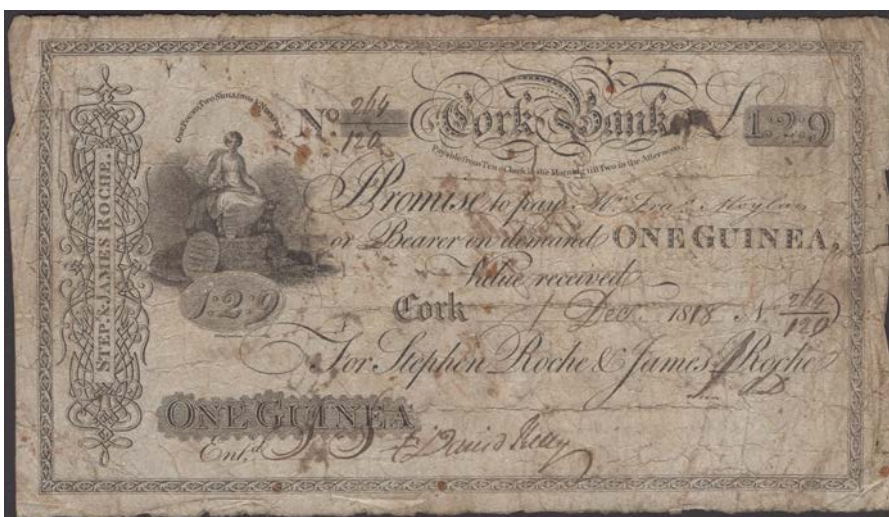 STEP. & JAMES ROCHE.
One Pound Two Shillings & Nine Pence
No. 264/120 Cork Bank £ 1:2:9
Payable from Ten o'Clock in the Morning till Two in the Afternoon.
I Promise to pay Mr. Fras. Moylan
or Bearer on demand ONE GUINEA,
Value received
1:2:9
Cork 1 Decr. 1818 No 264/120
For Stephen Roche & James Roche
ONE GUINEA
Entd. David Kelly